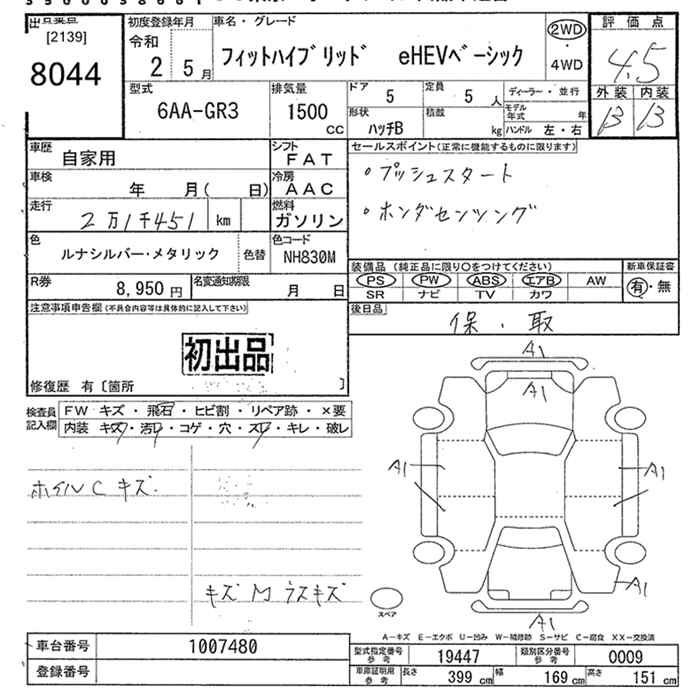 出品票点 初度登録年月 車名・グレード 評価点
[2139] 令和 2WD
8044 2 5月 フィットハイブリッド eHEVベーシック ・4WD 4.5
型式 排気量 ドア 5 定員 5人 ディーラー・並行 外装 内装
6AA-GR3 1500cc 形状 ハッチB 積載 kg モデル年式 年 ハンドル 左・右 B B
車歴 自家用 シフト FAT セールスポイント(正常に機能するものに限ります)
車検 年 月( 日) 冷房 AAC ・プッシュスタート
走行 2万1千451 km 燃料 ガソリン ・ホンダセンシング
色 ルナシルバー・メタリック 色替 色コード NH830M
R券 8,950円 名変通知期限 月 日 装備品(純正品に限り○をつけてください) 新車保証書
PS PW ABS エアB AW 有・無
SR ナビ TV カワ
注意事項申告欄(不具合内容等は具体的に記入して下さい) 後日品 保・取
初出品
修復歴 有〔箇所 〕
検査員記入欄 FW キズ・飛石・ヒビ割・リペア跡・×要
内装 キズ・汚レ・コゲ・穴・スレ・キレ・破レ
A1
A1
A1 A1
ホイルC キズ
キズ M ラスキズ A1
スペア A1
A-キズ E-エクボ U-凹み W-補修跡 S-サビ C-腐食 XX-交換済
車台番号 1007480 型式指定番号 参考 19447 類別区分番号 参考 0009
登録番号 車庫証明用 参考 長さ 399cm 幅 169cm 高さ 151cm